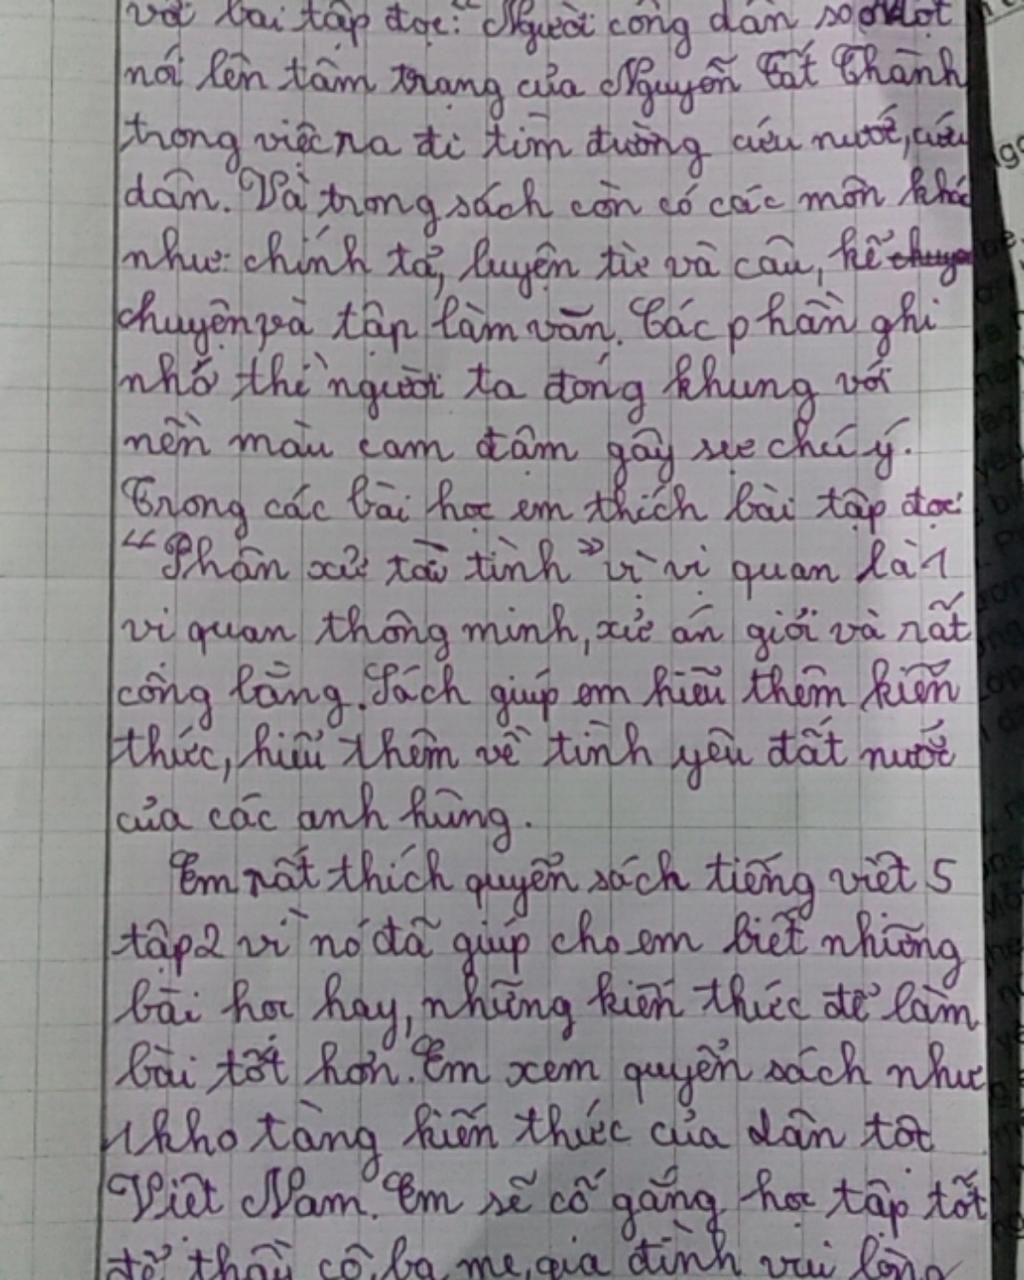 với bài tập đọc: "Người công dân số một
nói lên tâm trạng của Nguyễn Tất Thành
trong việc ra đi tìm đường cứu nước, cứu
dân. Và trong sách còn có các môn khác
như: chính tả, luyện từ và câu, kể chuyện
chuyện và tập làm văn. Các phần ghi
nhớ thì người ta đóng khung với
nền màu cam đậm gây sự chú ý.
Trong các bài học em thích bài tập đọc:
"Phân xử tài tình" vì vị quan là 1
vị quan thông minh, xử án giỏi và rất
công bằng. Sách giúp em hiểu thêm kiến
thức, hiểu thêm về tình yêu đất nước
của các anh hùng.
Em rất thích quyển sách tiếng việt 5
tập 2 vì nó đã giúp cho em biết những
bài học hay, những kiến thức để làm
bài tốt hơn. Em xem quyển sách như
1 kho tàng kiến thức của dân tộc
Việt Nam. Em sẽ cố gắng học tập tốt
để thầy cô, ba mẹ, gia đình vui lòng